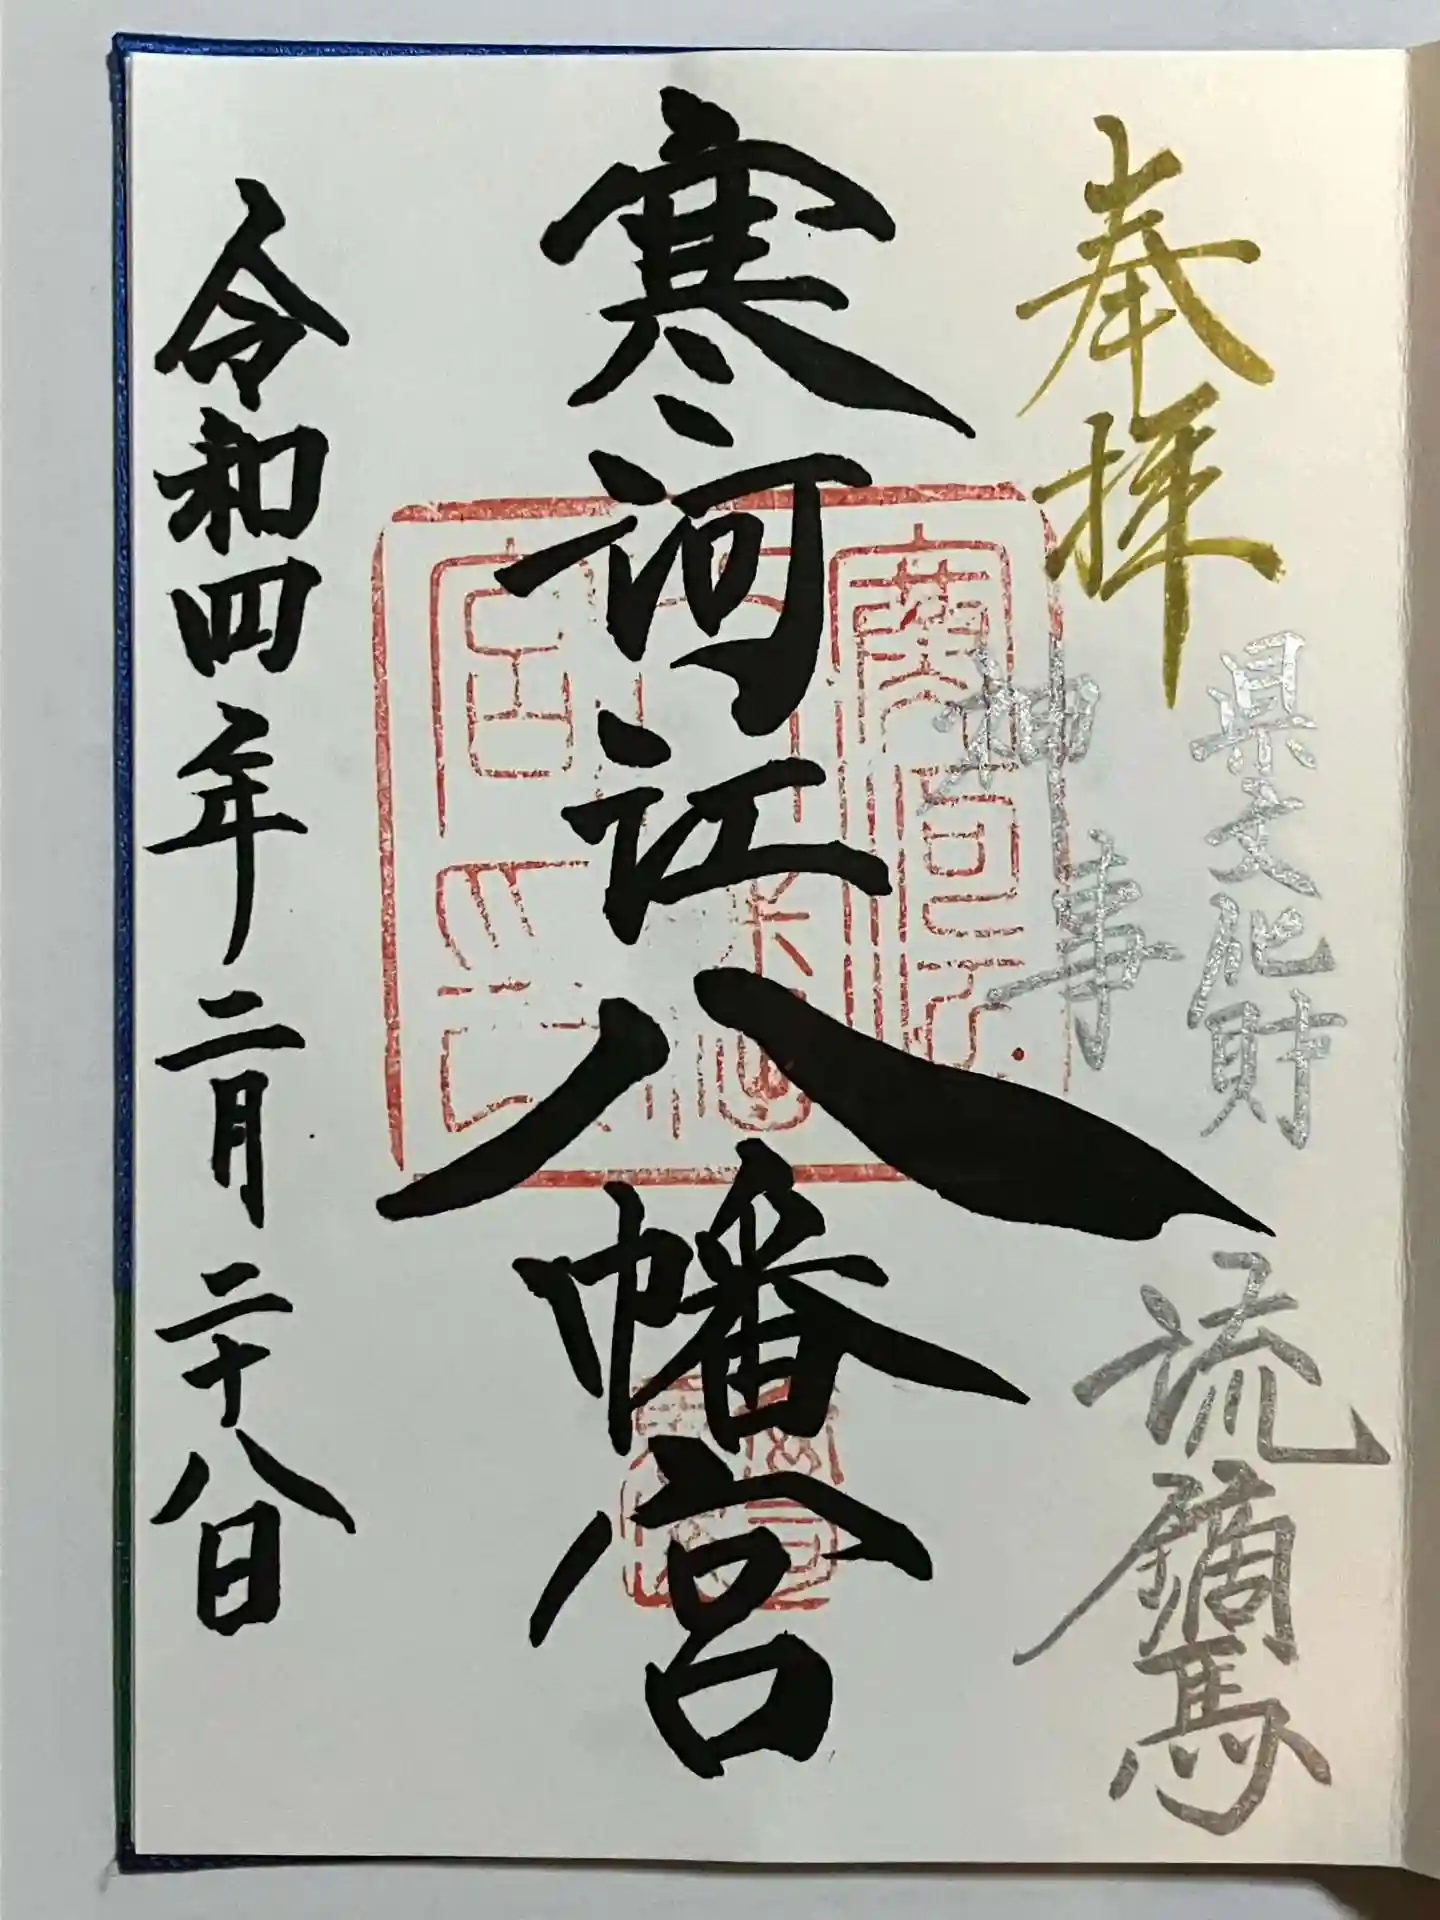 奉拝
県文化財
神事
流鏑馬
寒河江八幡宮
令和四年二月二十八日